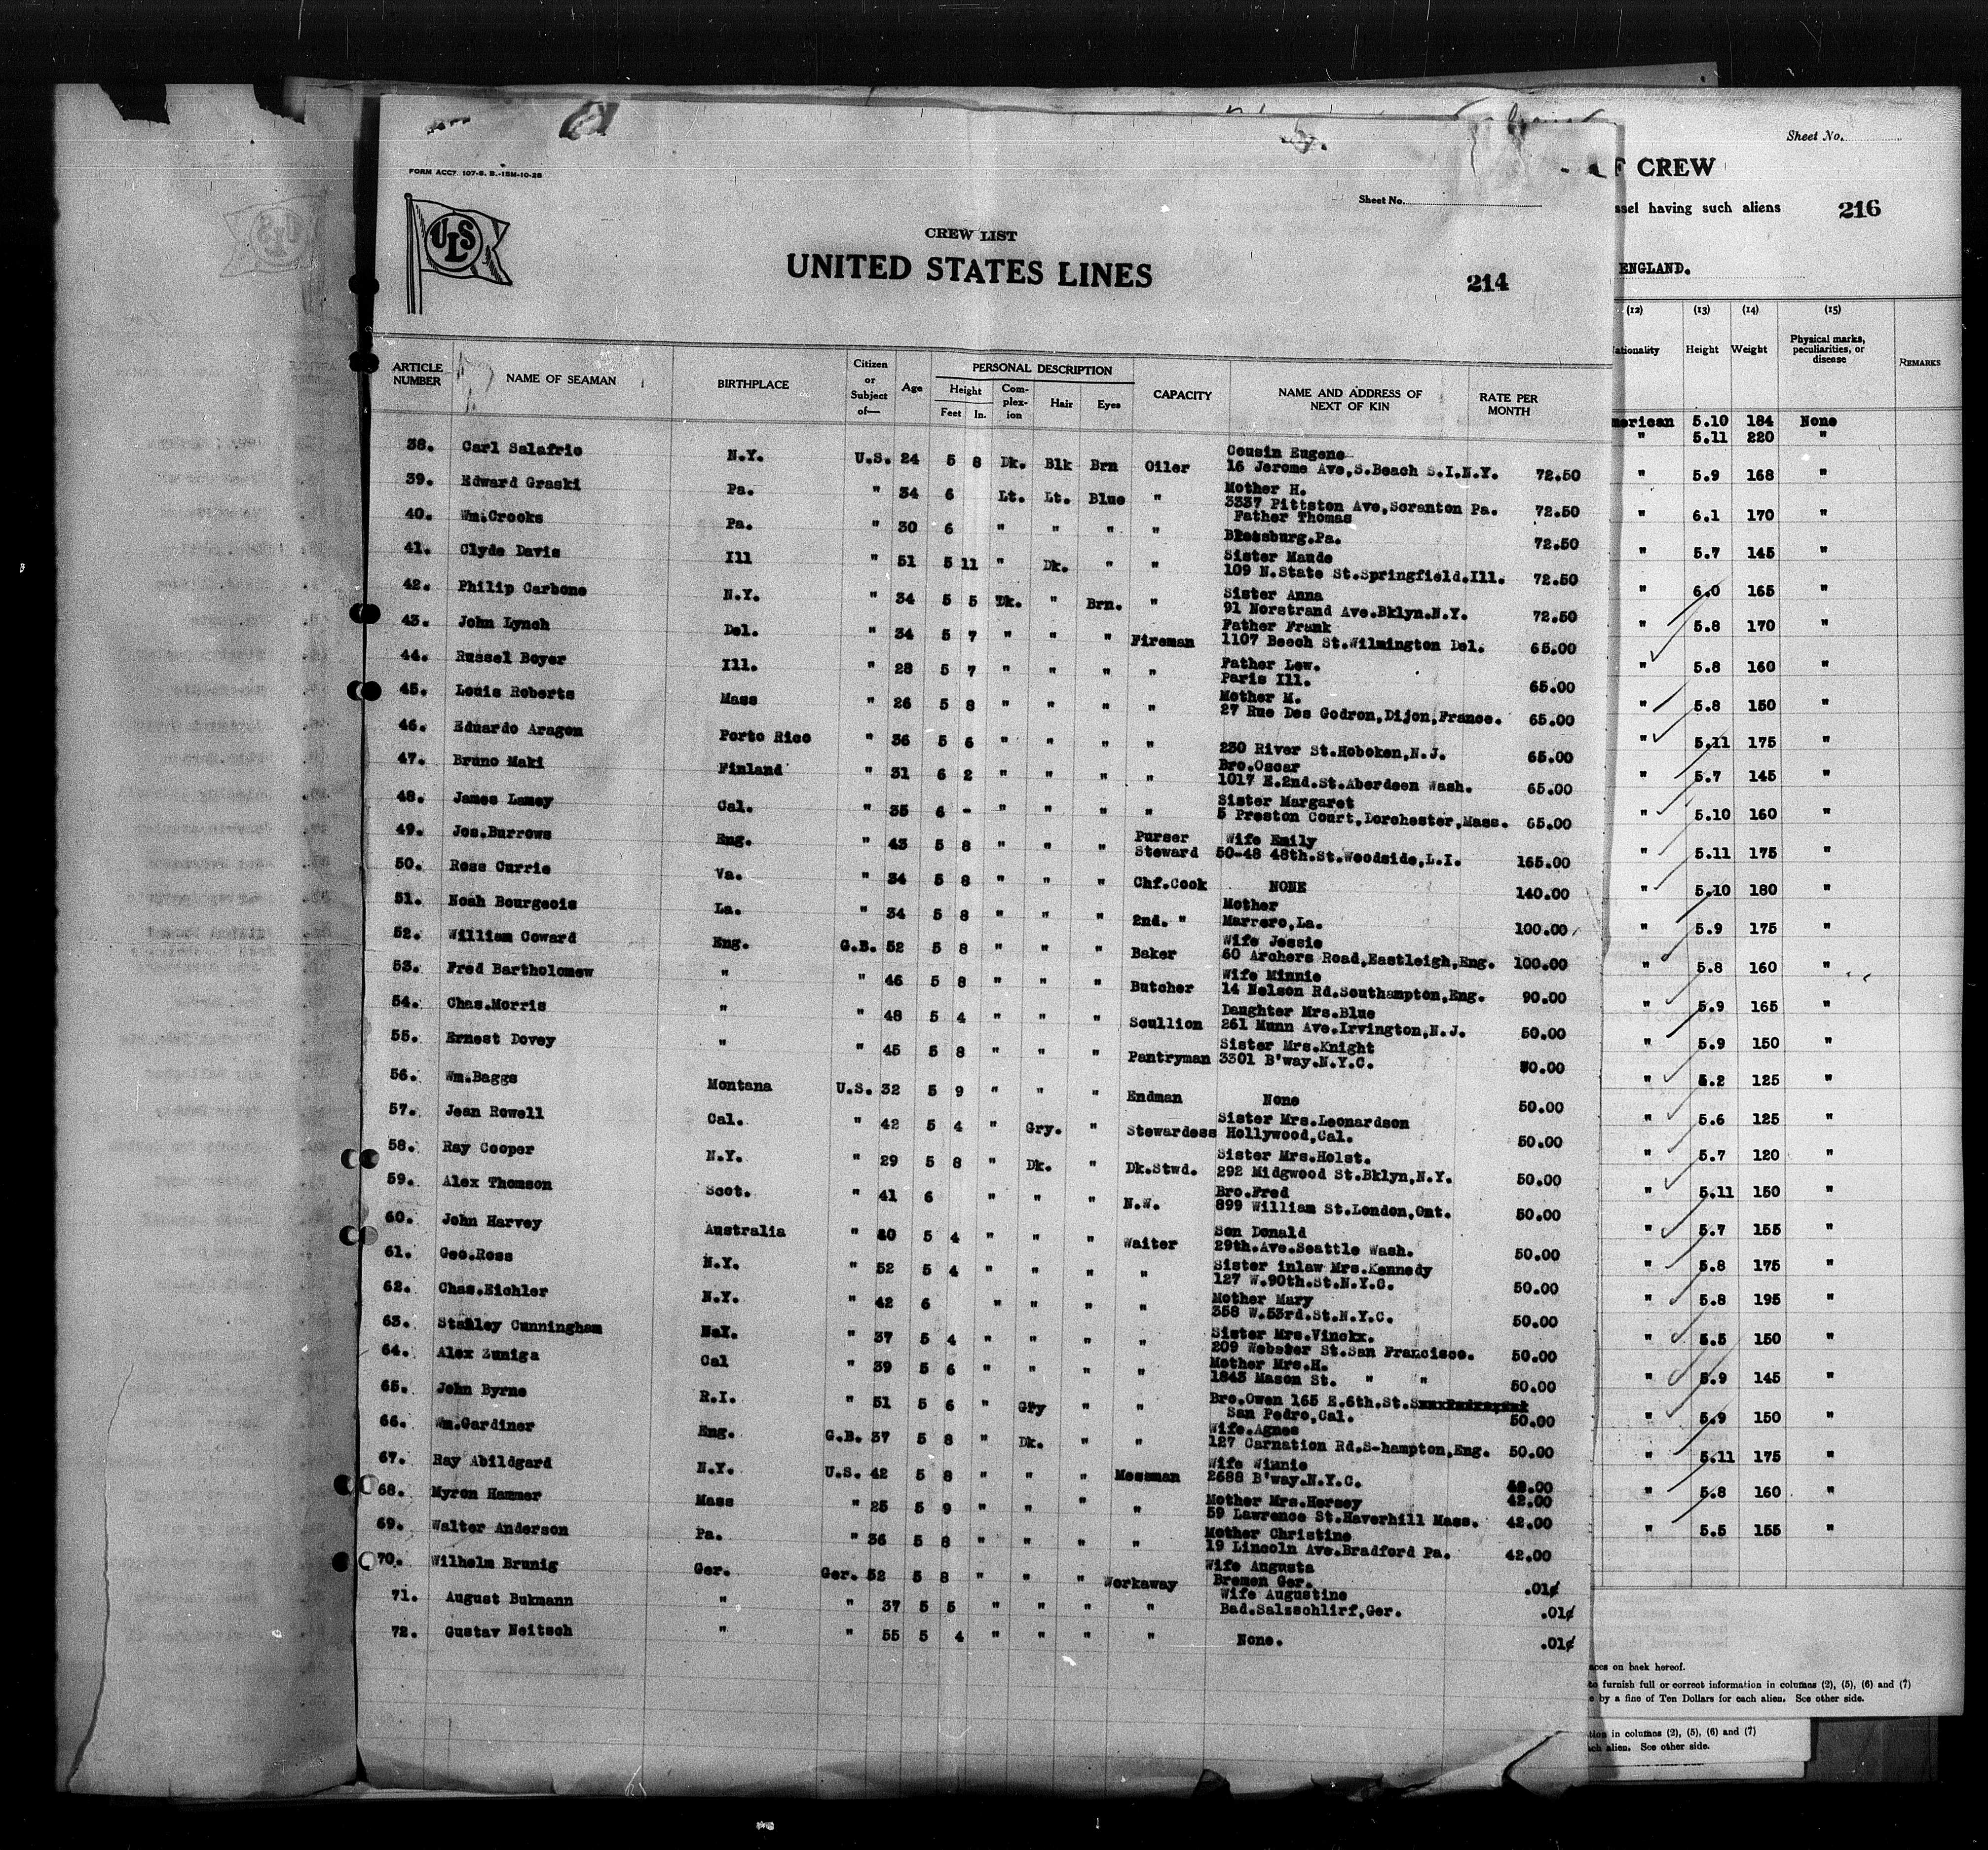 Sheet No.
F CREW
ssel having such aliens
216
ENGLAND.
FORM ACCT. 107-S. B.-15M-10-28
Sheet No.
ULS
CREW LIST
UNITED STATES LINES
214
ARTICLE NUMBER NAME OF SEAMAN BIRTHPLACE Citizen or Subject of— Age PERSONAL DESCRIPTION Height Feet In. Complexion Hair Eyes CAPACITY NAME AND ADDRESS OF NEXT OF KIN RATE PER MONTH
38. Carl Salafrio N.Y. U.S. 24 5 8 Dk. Blk Brn Oiler Cousin Eugene 16 Jerome Ave,S.Beach S.I.N.Y. 72.50
39. Edward Graski Pa. " 34 6 Lt. Lt. Blue " Mother H. 3337 Pittston Ave,Scranton Pa. 72.50
40. Wm.Crooks Pa. " 30 6 " " " " Father Thomas Blossburg.Pa. 72.50
41. Clyde Davis Ill " 51 5 11 " Dk. " " Sister Maude 109 N.State St.Springfield.Ill. 72.50
42. Philip Carbone N.Y. " 34 5 5 Dk. " Brn. " Sister Anna 91 Norstrand Ave.Bklyn.N.Y. 72.50
43. John Lynch Del. " 34 5 7 " " " Fireman Father Frank 1107 Beech St.Wilmington Del. 65.00
44. Russel Boyer Ill. " 28 5 7 " " " " Father Lew. Paris Ill. 65.00
45. Louis Roberts Mass " 26 5 8 " " " " Mother M. 27 Rue Des Godron,Dijon,France. 65.00
46. Eduardo Aragon Porto Rico " 36 5 6 " " " " 230 River St.Hoboken,N.J. 65.00
47. Bruno Maki Finland " 31 6 2 " " " " Bro.Oscar 1017 E.2nd.St.Aberdeen Wash. 65.00
48. James Lamey Cal. " 35 6 - " " " " Sister Margaret 5 Preston Court,Dorchester,Mass. 65.00
49. Jos.Burrows Eng. " 43 5 8 " " " Purser Steward Wife Emily 50-48 48th.St.Woodside,L.I. 165.00
50. Ross Currie Va. " 34 5 8 " " " Chf.Cook NONE 140.00
51. Noah Bourgeois La. " 34 5 8 " " " 2nd. " Mother Marrero,La. 100.00
52. William Coward Eng. G.B. 52 5 8 " " " Baker Wife Jessie 60 Archers Road,Eastleigh,Eng. 100.00
53. Fred Bartholomew " " 46 5 8 " " " Butcher Wife Minnie 14 Nelson Rd.Southampton,Eng. 90.00
54. Chas.Morris " " 48 5 4 " " " Scullion Daughter Mrs.Blue 261 Munn Ave.Irvington,N.J. 50.00
55. Ernest Dovey " " 45 5 8 " " " Pantryman Sister Mrs.Knight 3301 B'way.N.Y.C.
56. Wm.Baggs Montana U.S. 32 5 9 " " " Endman None 50.00
57. Jean Rowell Cal. " 42 5 4 " Gry. " Stewardess Sister Mrs.Leonardson Hollywood,Cal. 50.00
58. Ray Cooper N.Y. " 29 5 8 " Dk. " Dk.Stwd. Sister Mrs.Holst. 292 Midgwood St.Bklyn,N.Y. 50.00
59. Alex Thomson Scot. " 41 6 " " " N.W. Bro.Fred 899 William St.London,Ont. 50.00
60. John Harvey Australia " 5 4 " " " Waiter Son Donald 29th.Ave.Seattle Wash. 50.00
61. Geo.Ross N.Y. " 52 5 4 " " " " Sister inlaw Mrs.Kennedy 127 W.90th.St.N.Y.C. 50.00
62. Chas.Eichler N.Y. " 42 6 " " " " Mother Mary 358 W.53rd.St.N.Y.C. 50.00
63. Stanley Cunningham N.Y. " 37 5 4 " " " " Sister Mrs.Vinckx. 209 Webster St.San Francisco. 50.00
64. Alex Zuniga Cal " 39 5 6 " " " " Mother Mrs.H. 1845 Mason St. " " 50.00
65. John Byrne R.I. " 51 5 6 " Gry " " Bro.Owen 165 E.6th.St. San Pedro,Cal. 50.00
66. Wm.Gardiner Eng. G.B. 37 5 8 " Dk. " " Wife.Agnes 127 Carnation Rd.S-hampton,Eng. 50.00
67. Ray Abildgard N.Y. U.S. 42 5 8 " " " Messman Wife Winnie 2688 B'way.N.Y.C. 42.00
68. Myron Hammer Mass " 25 5 9 " " " " Mother Mrs.Hersey 59 Lawrence St.Haverhill Mass. 42.00
69. Walter Anderson Pa. " 36 5 8 " " " " Mother Christine 19 Lincoln Ave.Bradford Pa. 42.00
70. Wilhelm Brunig Ger. Ger. 52 5 8 " " " Workaway Wife Augusta Bremen Ger. .01¢
71. August Bukmann " " 37 5 5 " " " " Wife Augustine Bad.Salzschlirf,Ger. .01¢
72. Gustav Neitsch " " 55 5 4 " " " " None. .01¢
(12) (13) (14) (15)
ationality Height Weight Physical marks, peculiarities, or disease REMARKS
merican 5.10 184 None
" 5.11 220 "
" 5.9 168 "
" 6.1 170 "
" 5.7 145 "
" 6.0 165 "
" 5.8 170 "
" 5.8 160 "
" 5.8 150 "
" 5.11 175 "
" 5.7 145 "
" 5.10 160 "
" 5.11 175 "
" 5.10 180 "
" 5.9 175 "
" 5.8 160 "
" 5.9 165 "
" 5.9 150 "
" 5.2 125 "
" 5.6 125 "
" 5.7 120 "
" 5.11 150 "
" 5.7 155 "
" 5.8 175 "
" 5.8 195 "
" 5.5 150 "
" 5.9 145 "
" 5.9 150 "
" 5.11 175 "
" 5.8 160 "
" 5.5 155 "
ces on back hereof.
to furnish full or correct information in columns (2), (5), (6) and (7)
e by a fine of Ten Dollars for each alien. See other side.
ation in columns (2), (5), (6) and (7)
ach alien. See other side.